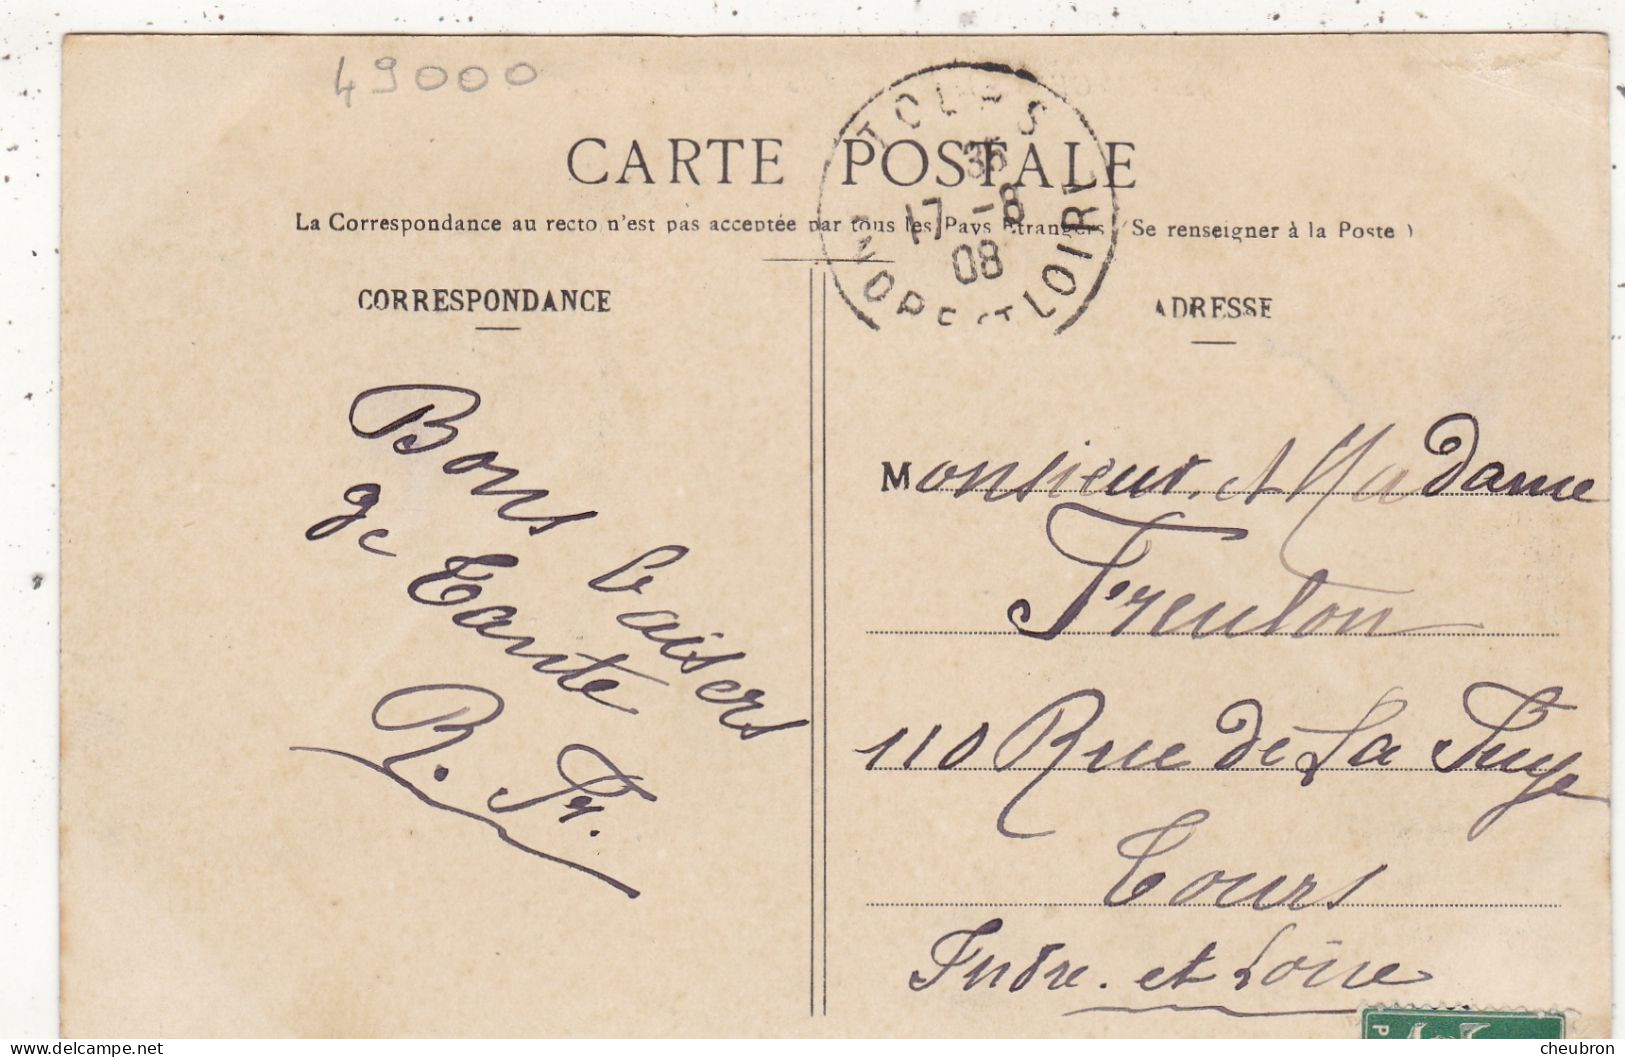 49000
CARTE POSTALE
La Correspondance au recto n'est pas acceptée par tous les Pays Etrangers (Se renseigner à la Poste)
TOURS
36
17 -8
08
INDRE ET LOIRE
CORRESPONDANCE
Bons baisers
de Tante
B. Fr.
ADRESSE
Monsieur et Madame
Freulon
110 Rue de La Fuye
Tours
Indre. et Loire
cheubron
delcampe.net